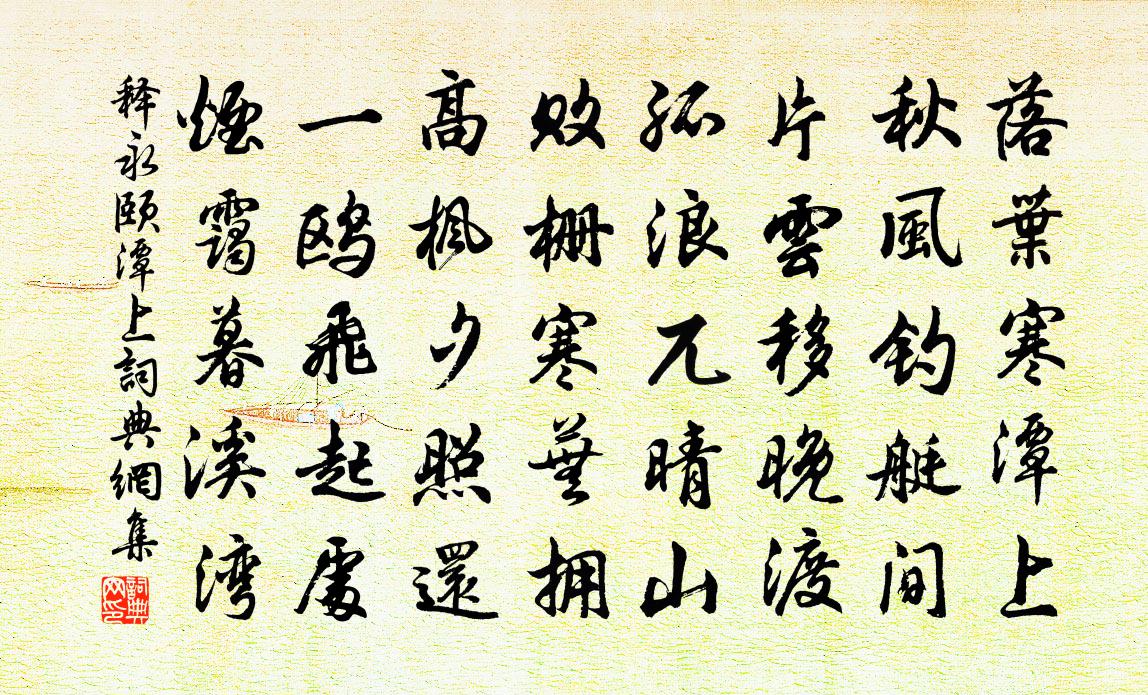 落葉寒潭上
秋風釣艇间
片雲移晚渡
孤浪兀晴山
敗栅寒蕪拥
高楓夕照還
一鸥飛起處
煙靄暮溪湾
释永颐潭上詞典網集
詞典网印